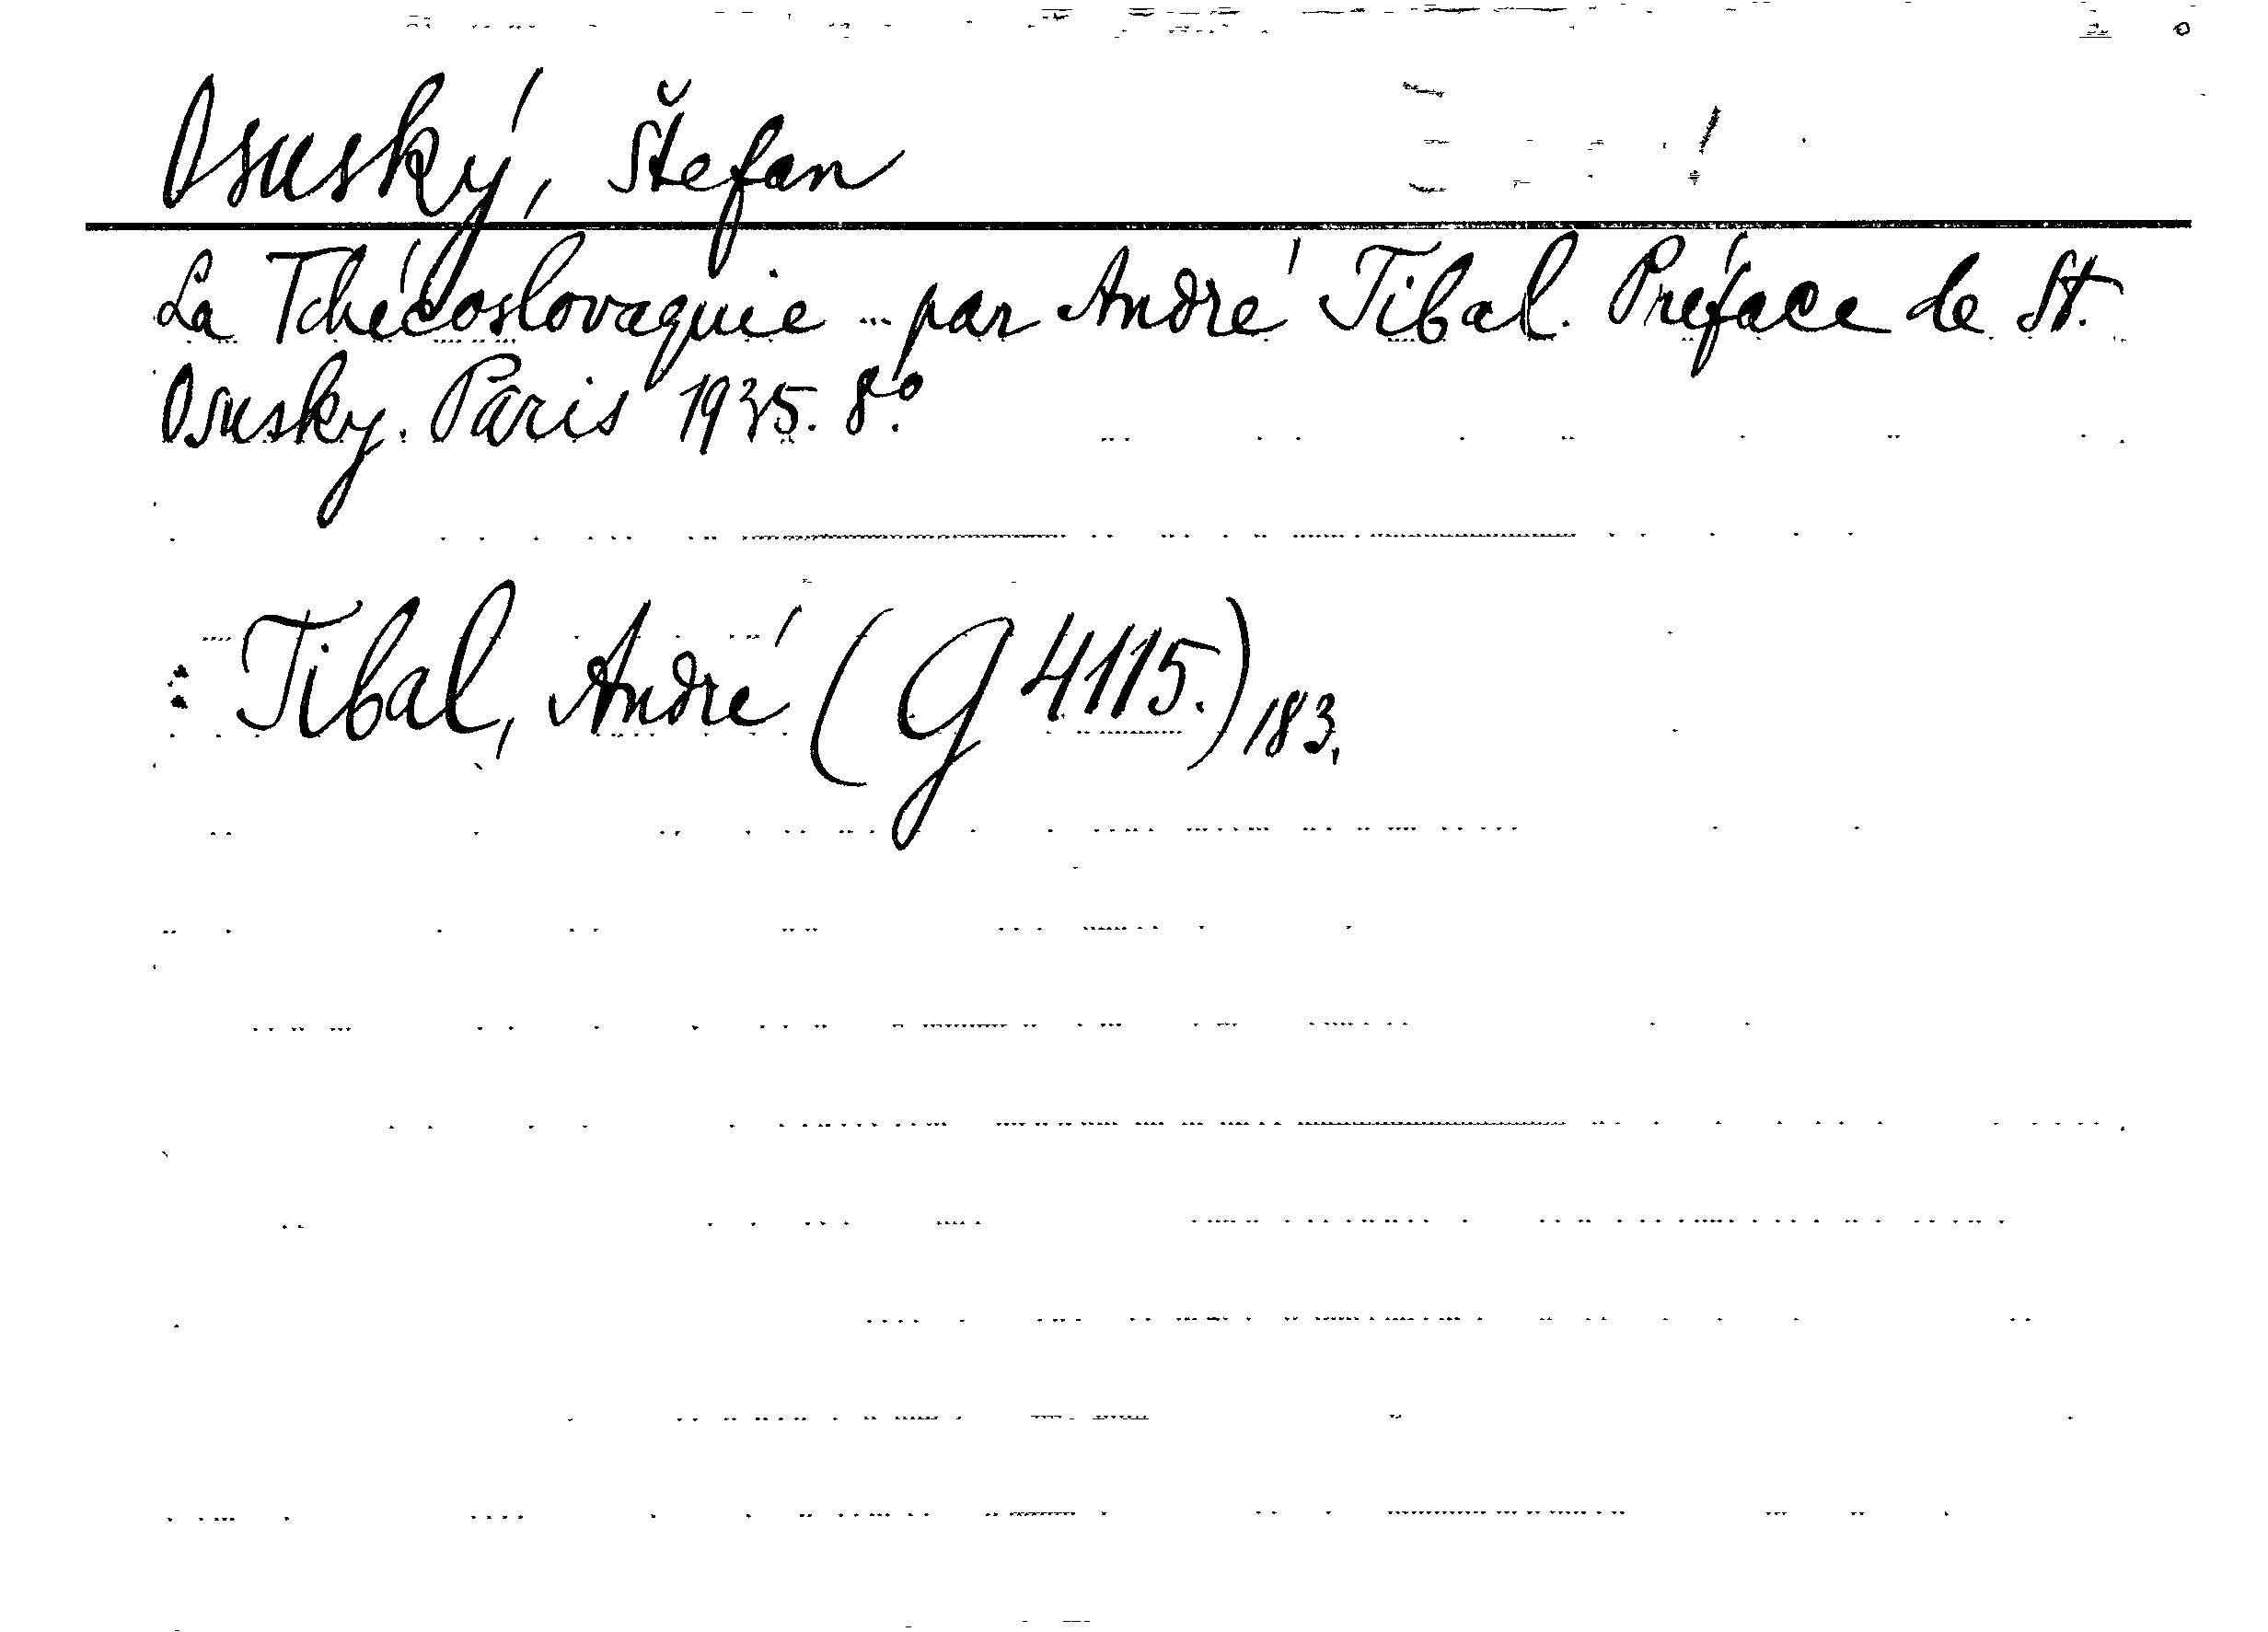 Osuský, Štefan
La Tchécoslovaquie ... par André Tibal. Préface de St.
Osusky. Paris 1935. 8º.
: Tibal, André (G 4115.) 183.